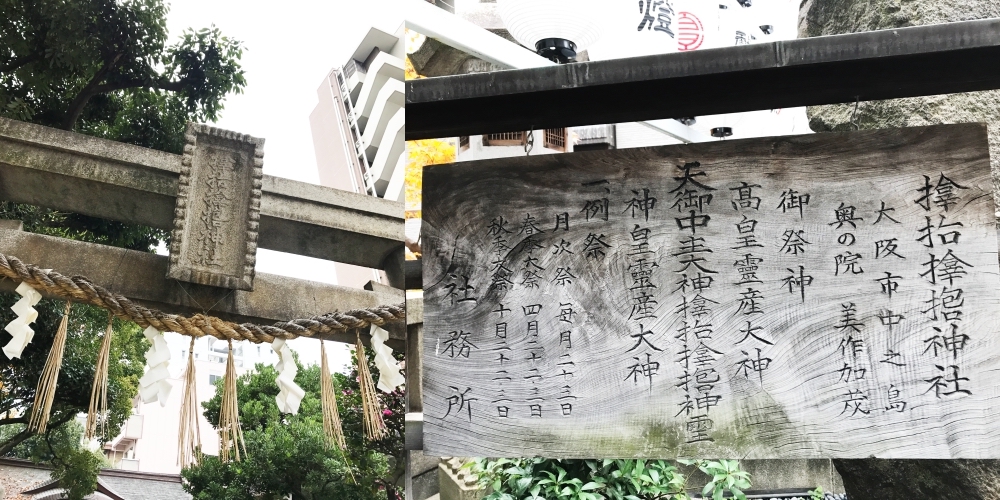 神社
大阪市中之島
奥の院 美作加茂
御祭神
髙皇靈産大神
天御中主大神 神霊
神皇靈産大神
一例祭
月次祭 毎月二十三日
春季大祭 四月二十二、二三日
秋季大祭 十月二十二、二三日
社務所
燈